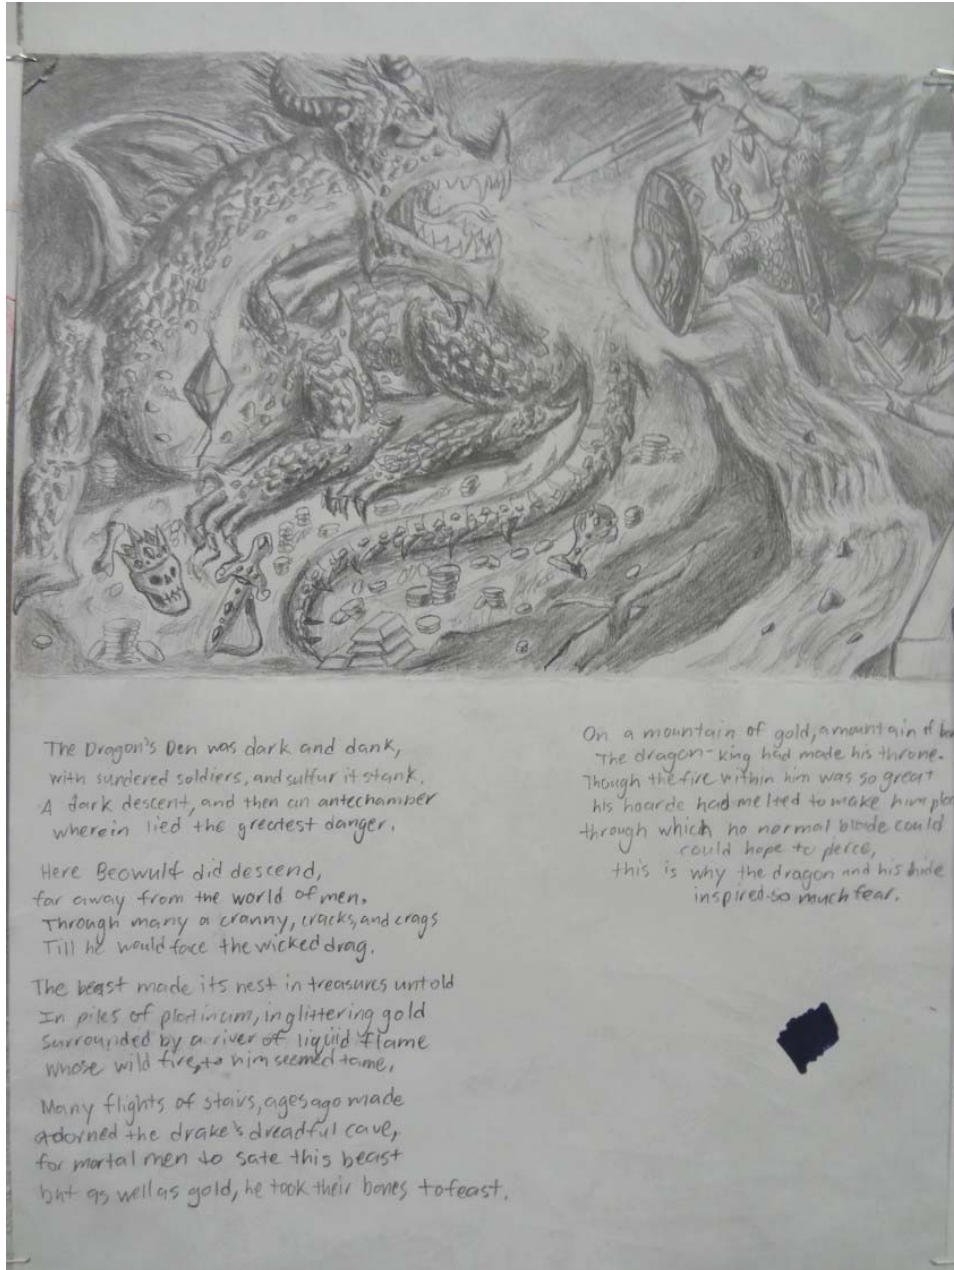 The Dragon's Den was dark and dank,
with sundered soldiers, and sulfur it stank.
A dark descent, and then an antechamber
wherein lied the greatest danger.
Here Beowulf did descend,
far away from the world of men.
Through many a cranny, cracks, and crags
Till he would face the wicked drag.
The beast made its nest in treasures untold
In piles of platinum, in glittering gold
surrounded by a river of liquid flame
whose wild fire, to him seemed tame.
Many flights of stairs, ages ago made
adorned the drake's dreadful cave,
for mortal men to sate this beast
but as well as gold, he took their bones to feast.
On a mountain of gold, a mountain of
The dragon-king had made his throne.
Though the fire within him was so great
his hoarde had melted to make him
through which no normal blade could
could hope to pierce,
this is why the dragon and his hide
inspired so much fear.